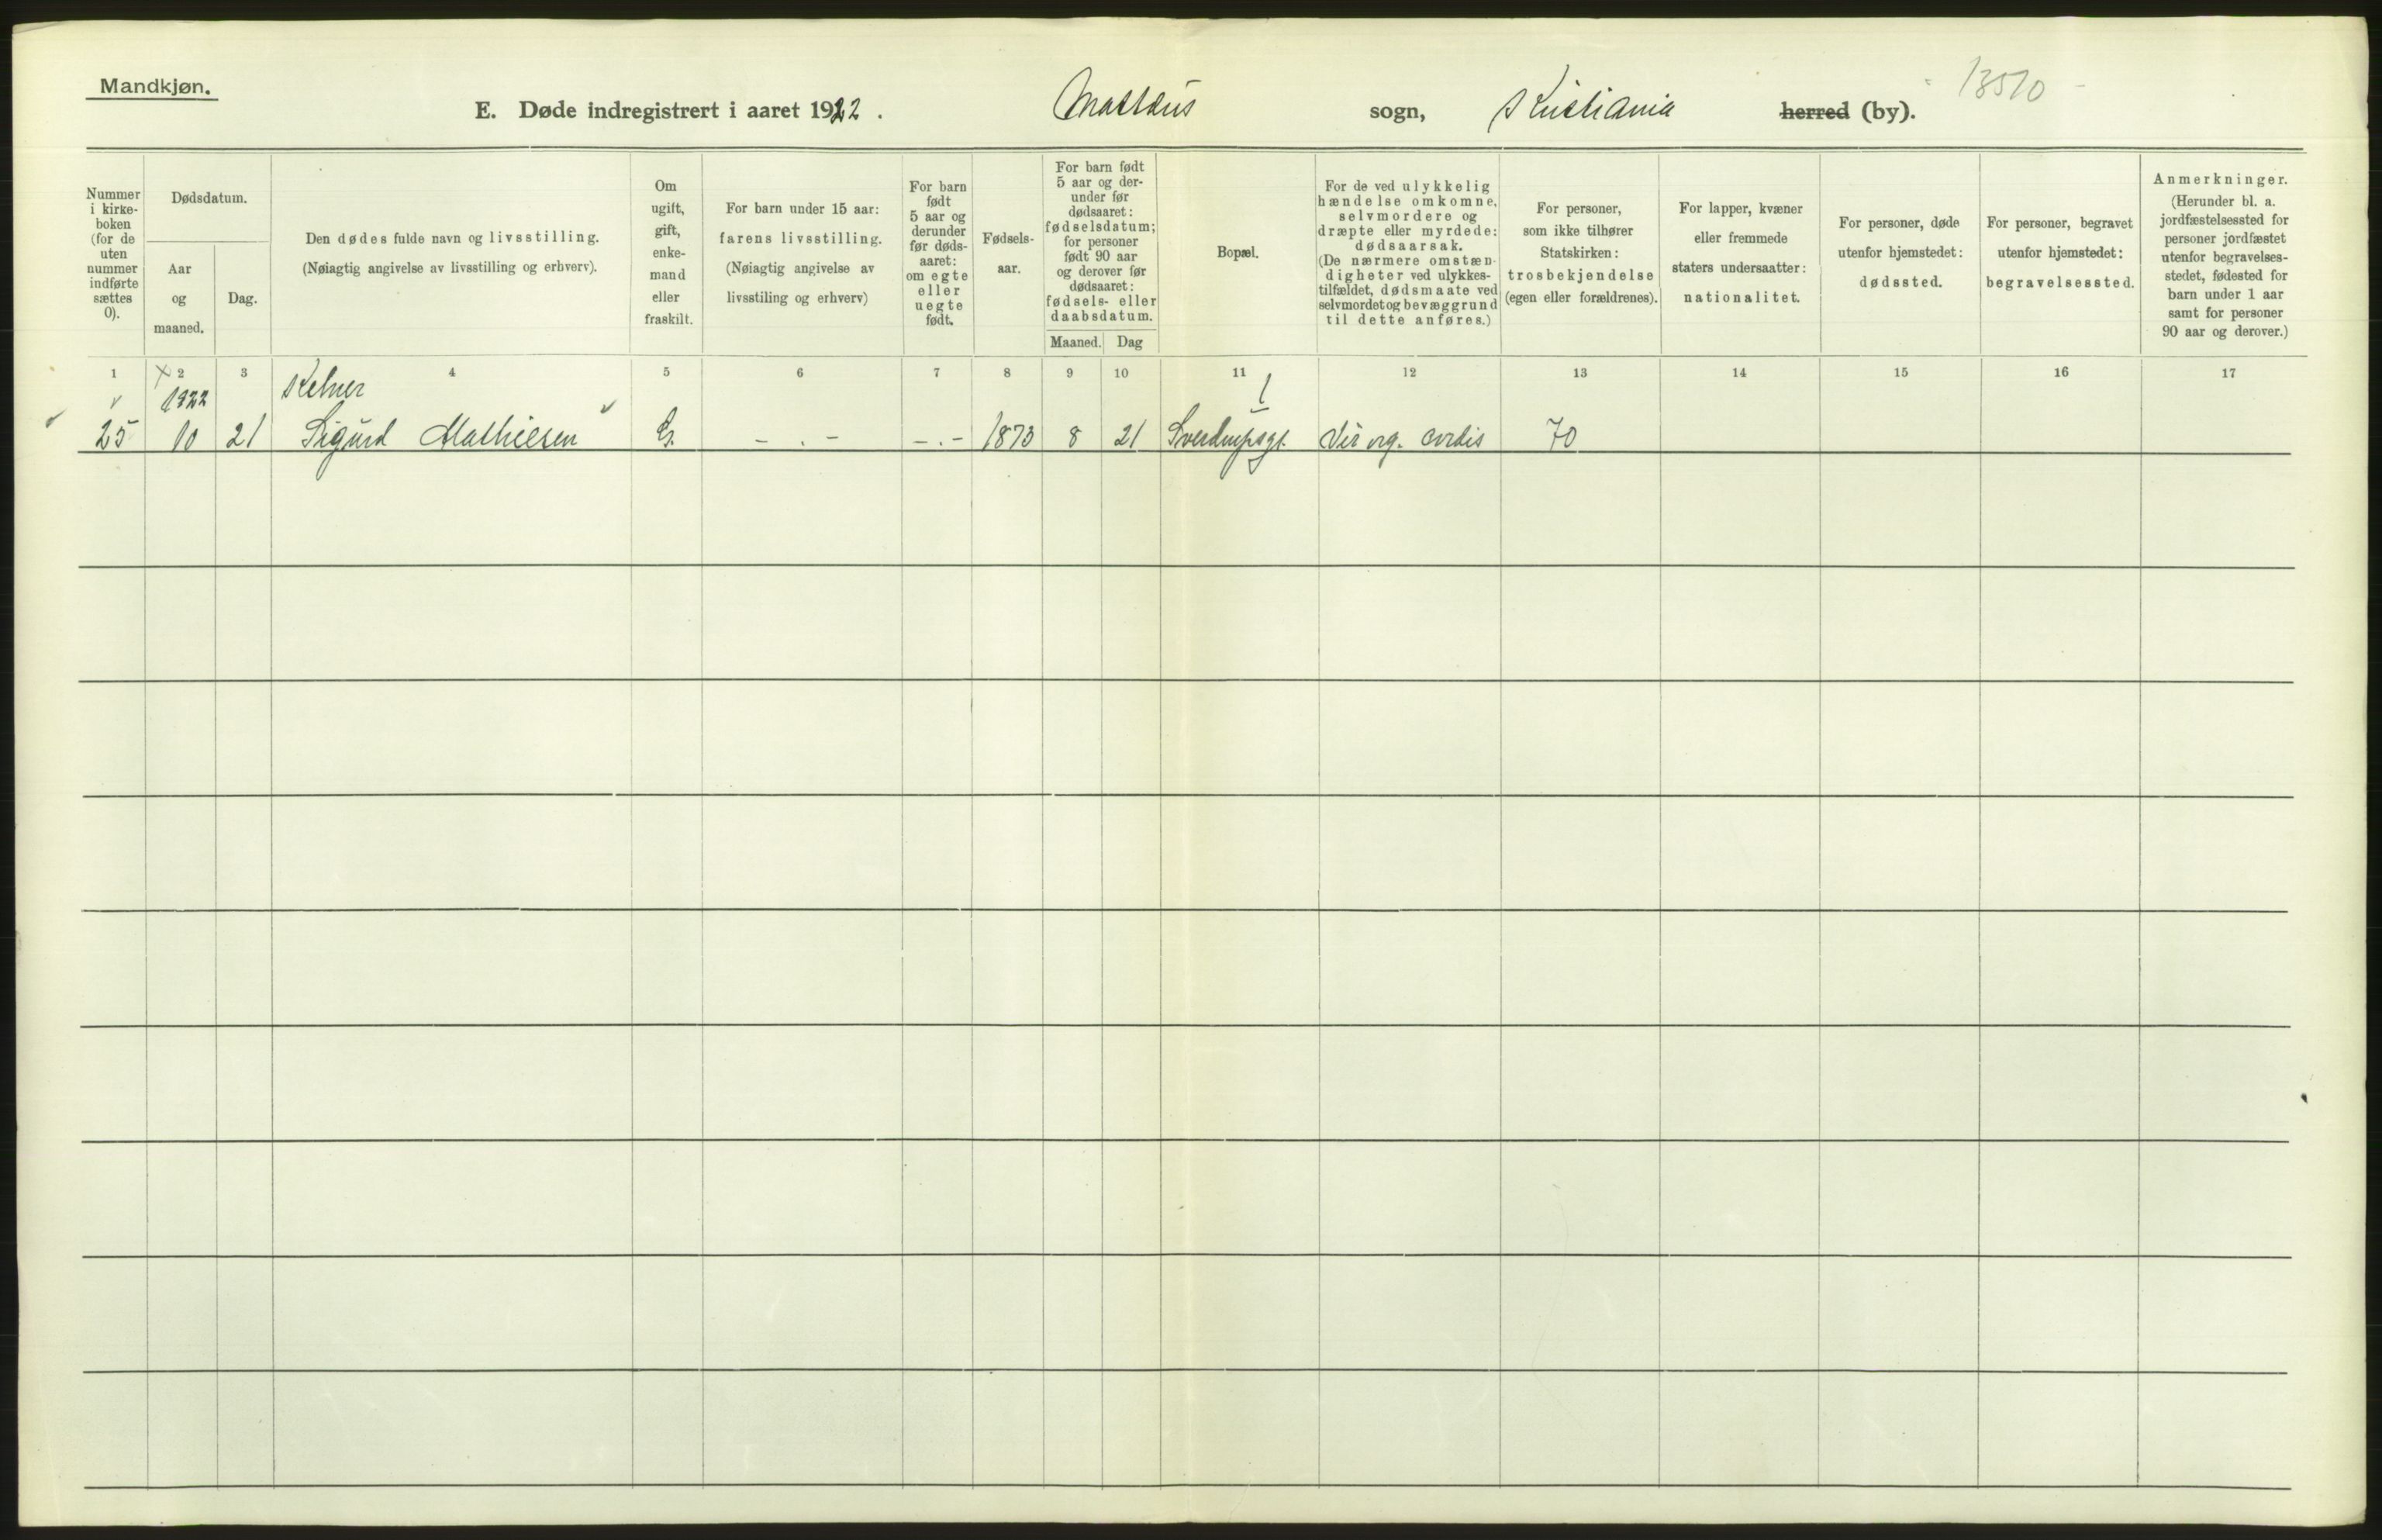 Mandkjøn.
E. Døde indregistrert i aaret 1922. Mattæus sogn, Kristiania herred (by). 13510
Nummer
i kirke-
boken
(for de
uten
nummer
indførte
sættes
0).
Dødsdatum.
Aar
og
maaned.
Dag.
Den dødes fulde navn og livsstilling.
(Nøiagtig angivelse av livsstilling og erhverv).
Om
ugift,
gift,
enke-
mand
eller
fraskilt.
For barn under 15 aar:
farens livsstilling.
(Nøiagtig angivelse av
livsstiling og erhverv)
For barn
født
5 aar og
derunder
før døds-
aaret:
om egte
eller
uegte
født.
Fødsels-
aar.
For barn født
5 aar og der-
under før
dødsaaret:
fødselsdatum;
for personer
født 90 aar
og derover før
dødsaaret:
fødsels- eller
daabsdatum.
Maaned. Dag
Bopæl.
For de ved ulykkelig
hændelse omkomne,
selvmordere og
dræpte eller myrdede:
dødsaarsak.
(De nærmere omstæn-
digheter ved ulykkes-
tilfældet, dødsmaate ved
selvmordet og bevæggrund
til dette anføres.)
For personer,
som ikke tilhører
Statskirken:
trosbekjendelse
(egen eller forældrenes).
For lapper, kvæner
eller fremmede
staters undersaatter:
nationalitet.
For personer, døde
utenfor hjemstedet:
dødssted.
For personer, begravet
utenfor hjemstedet:
begravelsessted.
Anmerkninger.
(Herunder bl. a.
jordfæstelsessted for
personer jordfæstet
utenfor begravelses-
stedet, fødested for
barn under 1 aar
samt for personer
90 aar og derover.)
1 2 3 4 5 6 7 8 9 10 11 12 13 14 15 16 17
1922 Kelner
25 10 21 Sigurd Mathiesen G. - . - - . - 1873 8 21 Sverdrupsgt. Vit. org. cordis 70